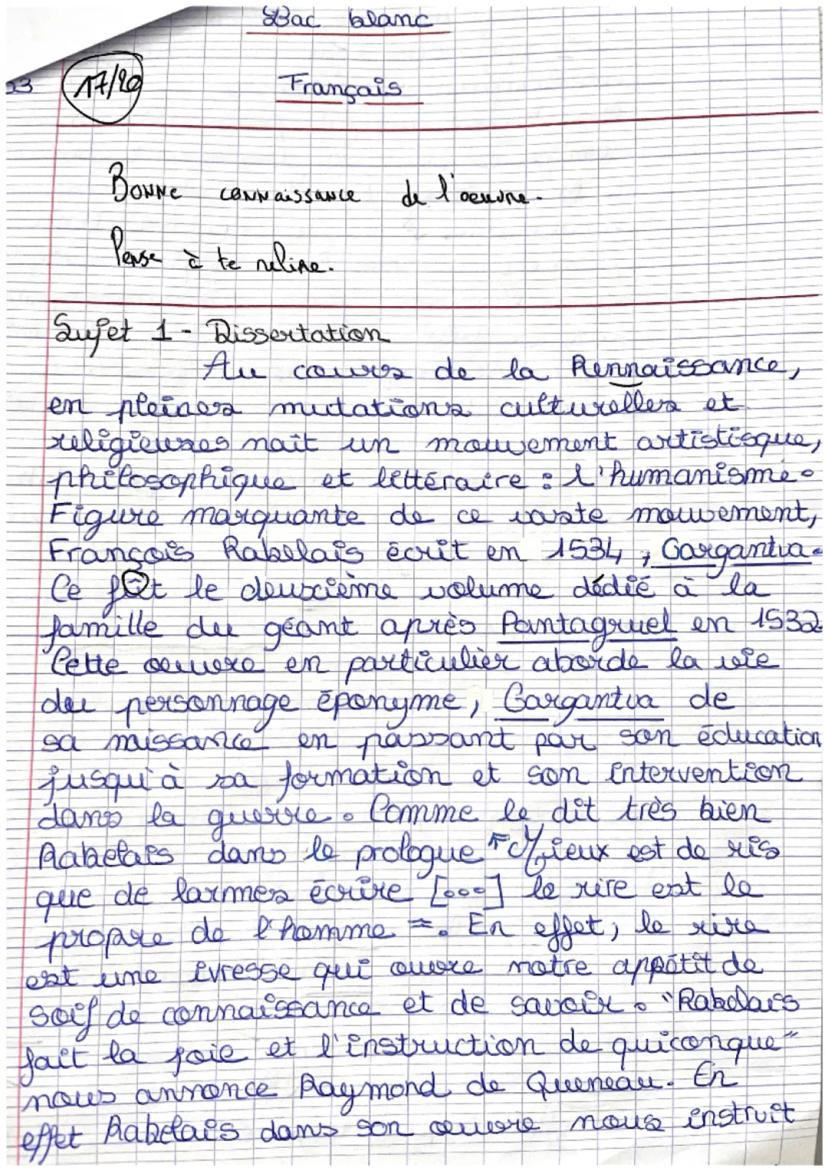 Bac blanc
23 17/20 Français
Bonne connaissance de l'oeuvre.
Pense à te relire.
Sujet 1 - Dissertation
Au cours de la Rennaissance,
en pleines mutations culturelles et
religieuses nait un mouvement artistisque,
philosophique et littéraire : l'humanisme.
Figure marquante de ce vaste mouvement,
François Rabelais écrit en 1534, Gargantua.
Ce fût le deuxième volume dédié à la
famille du géant après Pantagruel en 1532
Cette oeuvre en particulier aborde la vie
du personnage éponyme, Gargantua de
sa naissance en passant par son éducation
jusqu'à sa formation et son intervention
dans la guerre. Comme le dit très bien
Rabelais dans le prologue "Mieux est de ris
que de larmes écrire [...] le rire est le
propre de l'homme". En effet, le rire
est une ivresse qui ouvre notre appétit de
soif de connaissance et de savoir. "Rabelais
fait la joie et l'instruction de quiconque"
nous annonce Raymond de Queneau. En
effet Rabelais dans son oeuvre nous instruit